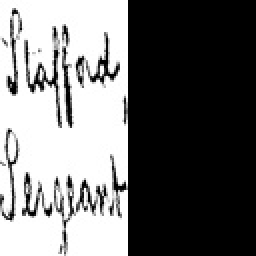 Stafford,
Sergeant